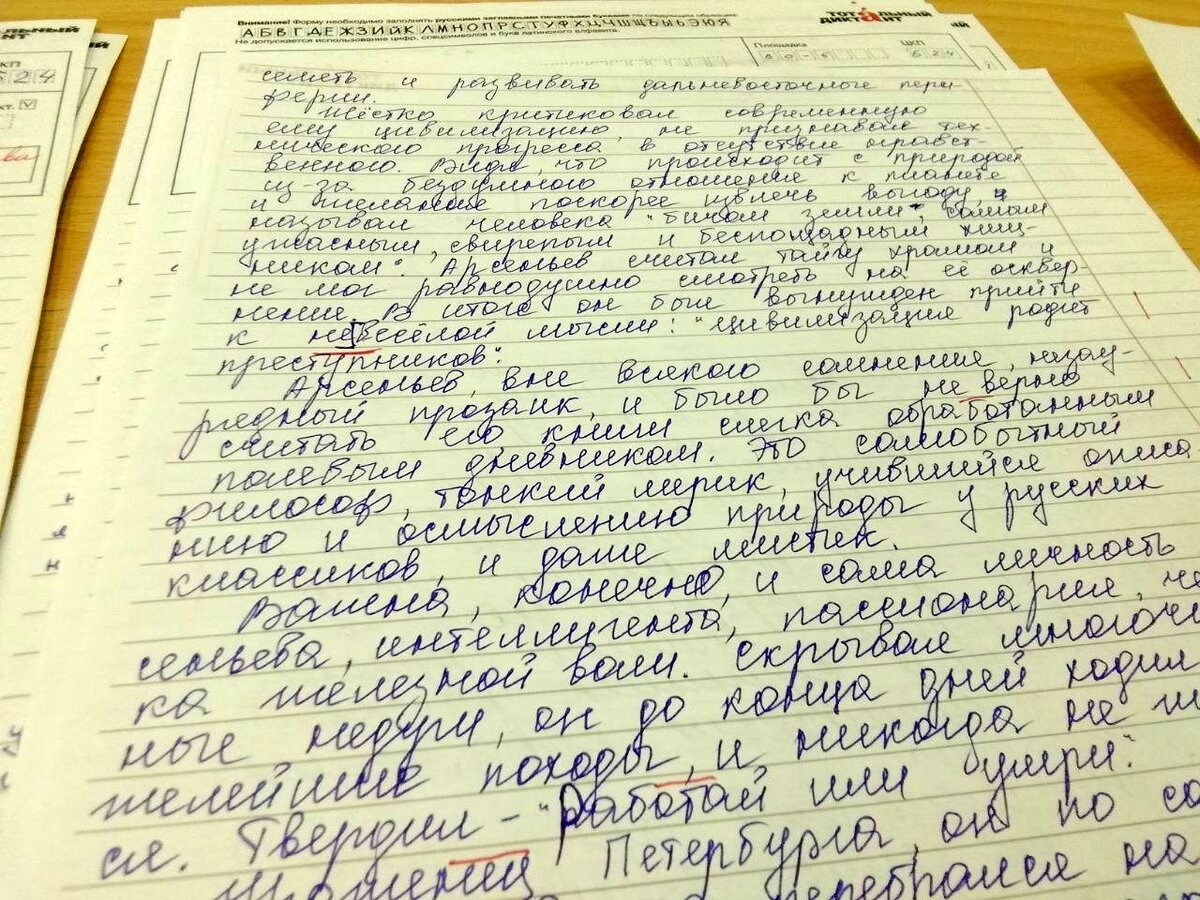 Внимание! Форму необходимо заполнять русскими заглавными печатными буквами по следующим образцам:
АБВГДЕЖЗИЙКЛМНОПРСТУФХЦЧШЩЪЫЬЭЮЯ
Не допускается использование цифр, спецсимволов и букв латинского алфавита.
ТОТАЛЬНЫЙ
ДИКТАНТ
Площадка
ЦКП
624
и развивать дальневосточные пери-
ферии.
Жёстко критиковал современную
ему цивилизацию, не признавал тех-
нического прогресса в отсутствие нравст-
венного. Видя, что происходит с природой
из-за бездумного отношения к планете
и желание поскорее извлечь выгоду,
называл человека "бичом земли", "самым
ужасным, свирепым и беспощадным хищ-
ником". Арсеньев считал тайгу храмом и
не мог равнодушно смотреть на её осквер-
нение. В итоге он был вынужден прийти
к невесёлой мысли: "цивилизация родит
преступников".
Арсеньев, вне всякого сомнения, незау-
рядный прозаик, и было бы не верно
считать его книги слегка обработанным
полевым дневником. Это самобытный
философ, тонкий лирик, учившийся описа-
нию и осмыслению природы у русских
классиков, и даже мистик.
Важна, конечно, и сама личность
сеньева, интеллигента, пассионария, че
ка железной воли. Скрывая многочи
ные недуги, он до конца дней ходил
желейшие походы, и никогда не
ся. Твердил – "Работай или умри".
Петербурга, он по со
перебрался на